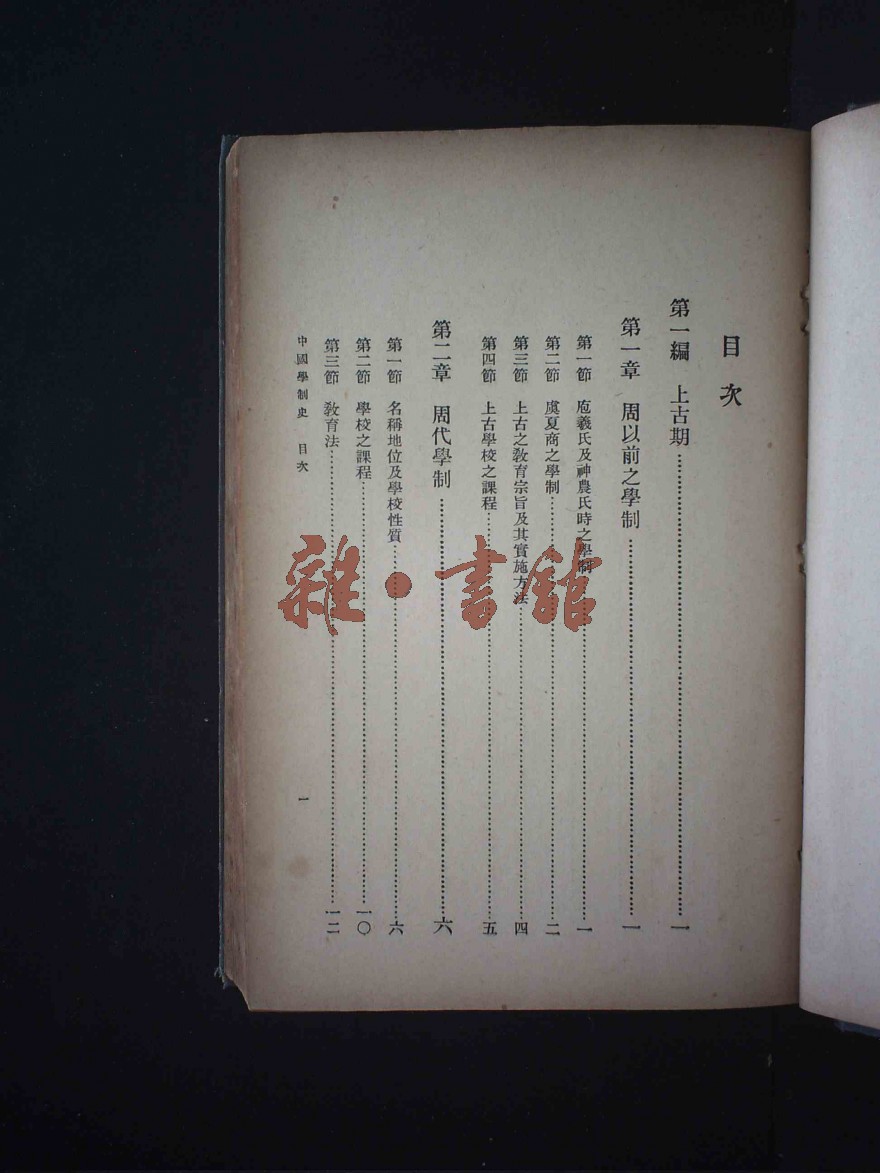 目次
第一編 上古期……一
第一章 周以前之學制……一
第一節 庖羲氏及神農氏時之學制……一
第二節 虞夏商之學制……二
第三節 上古之敎育宗旨及其實施方法……四
第四節 上古學校之課程……五
第二章 周代學制……六
第一節 名稱地位及學校性質……六
第二節 學校之課程……一〇
第三節 敎育法……一二
中國學制史 目次 一
雜·書館